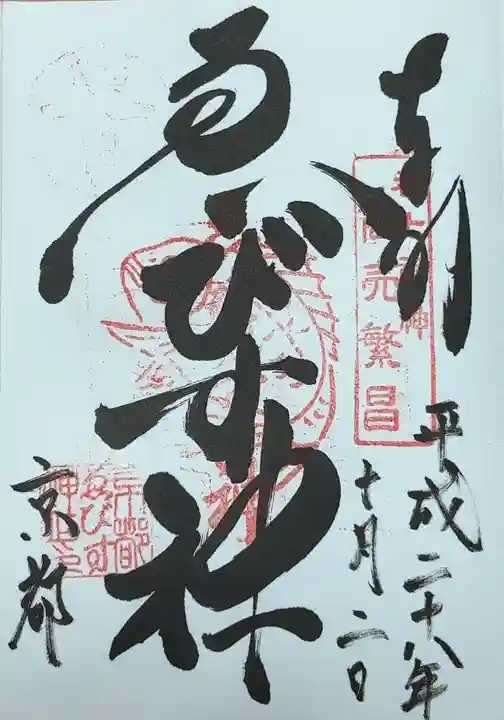 奉拝
平成二十八年
十月二日
商売繁昌
ゑびす神
京都
京都
ゑびす
神